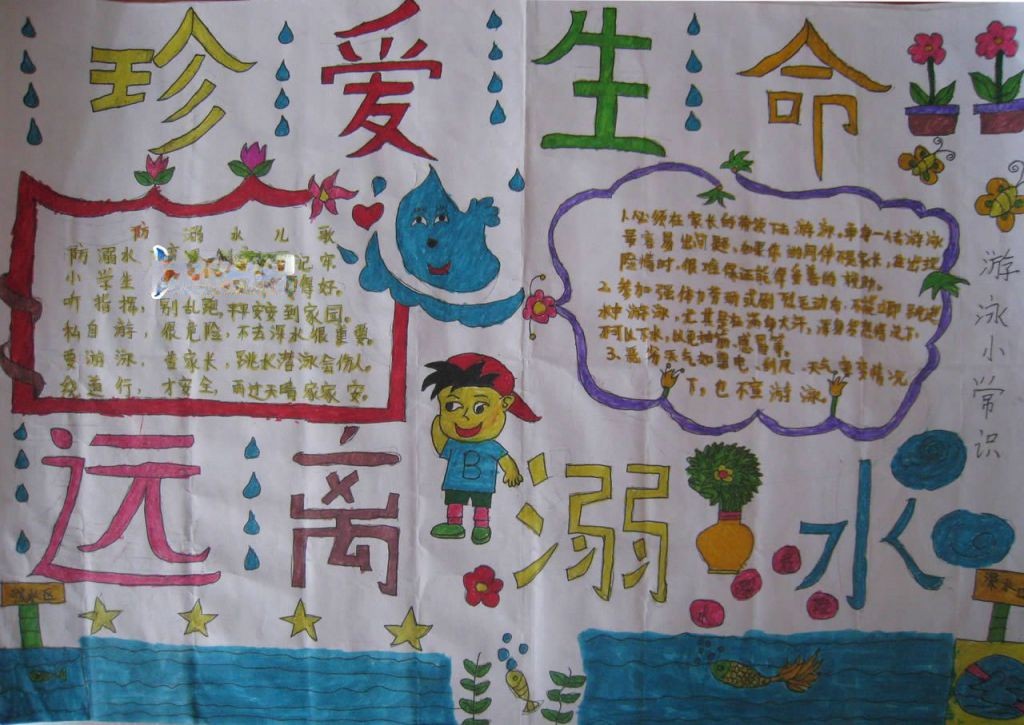 珍爱生命
防溺水儿歌
防溺水 记牢
小学生 得好
听指挥，别乱跑，平平安安到家园。
私自游，很危险，不去深水很重要。
要游泳，查家长，跳水潜泳会伤人。
才安全，雨过天晴家家安。
1.必须在家长的带领下去游泳，单身一人去游泳
最容易出问题、如果你的同伴不是家长，在出现
险情时，很难保证能得到妥善的救助。
2、参加强体力劳动或剧烈运动后，不能立即跳进
水中游泳，尤其是在满身大汗，浑身发热情况下，
不可以下水，以免抽筋、感冒等。
3、恶劣天气如雷电、刮风、天气突变情况
下，也不宜游泳。
游泳小常识
远离溺水
深水区